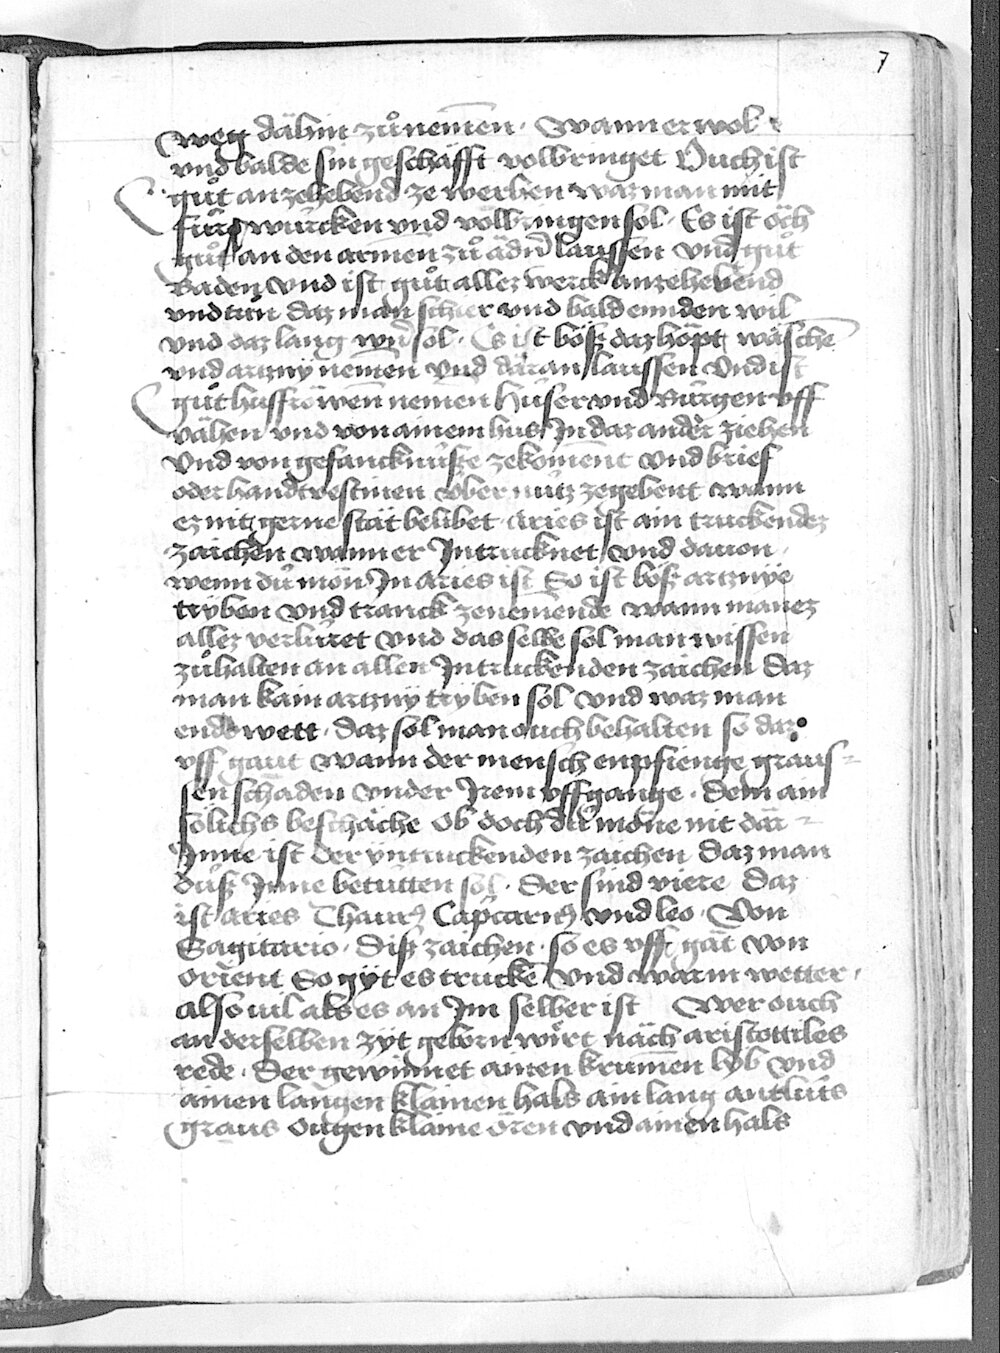 7
weg dähin zuͦ nemen · Wann er wol
vnd balde sin geschäfft volbringet Ouch ist
guͦt an zehebend ze werben waz man mit
für würcken vnd volbringen sol · Es ist öch
guͦt an den armen zuͦ ädn̄ laussen vnd guͦt
Baden vnd ist guͦt allez werck anzehebend
vnd tuͦn daz man schier vnd bald enden wil
vnd daz lang wn̄ sol · Es ist böß daz höpt wäschē
vnd artzny nemen vnd däran laussen Vnd ist
guͦt husfrowen nemen Hüser vnd Bürgen vff
vähen vnd von ainem hus Jn daz ander ziehen
Vnd von gefancknüße zekoment vnd brief
oder handvestinen über nütz zegebent wann
ez nit gerne stät belibet · Aries ist ain truckendez
zaichen wann er Jntrucknet vnd dauon
wenn dü mön Jn aries ist So ist böß artznye
tryben vnd tranck zenemende wann man ez
allez verlüret vnd das selbe sol man wissen
zuͦ halten an allen Jntruckenden zaichen daz
man kain artzny tryben sol vnd waz man
ende wett · daz sol man ouch behalten so daz
vff gaut wann der mensch enpfienge graus-
sen schaden vnder Jrem vffgange · dem ain
sölichs beschäche ob doch dü möne nit där-
Jnne ist der yntruckenden zaichen daz man
düß Jnne betütten sol · Der sind viere daz
ist aries Thaurꝰ Capcarnꝰ vnd leo · Von
Sagitario · diß zaichen · so es vff gät von
orient So gyt es trucken vnd warm wetter ·
also vil als es an Jm selber ist Wer ouch
an derselben zyt geborn wirt näch aristottiles
rede · Der gewinnet ainen krumen lyb vnd
ainen langen klainen hals ain lang antluts
graus ougen klaine ören vnd ainen hals